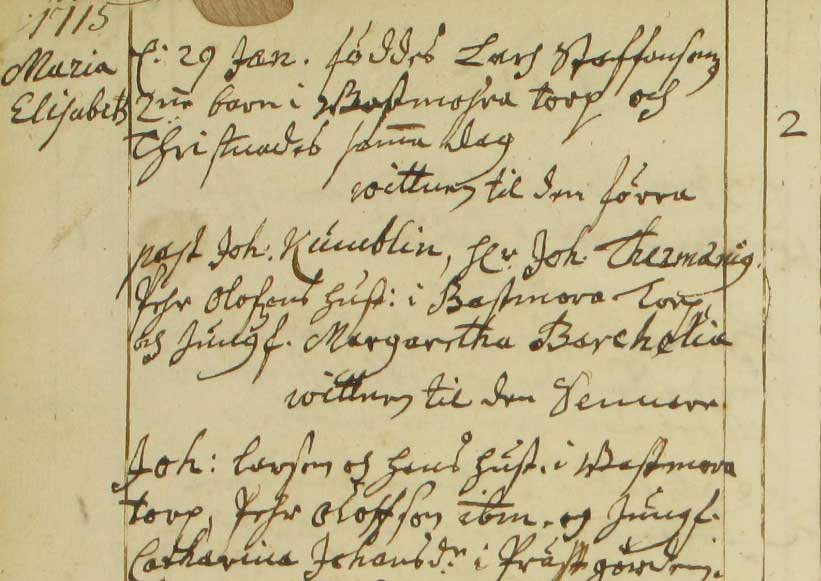 1715
Maria
Elisabeth
29 Jan. föddes Lars Staffansons
2ne barn i Wastmohra torp och
Christnades samma dag
wittnen til den förra
past Joh: Kumblin, Hr. Joh. Thermænig.
Pehr Olofsons hust: i Bastmora Torp
och Jungf. Margaretha Barchelia
wittnen til den Sennare
Joh: Larson och hans hust. i Wastmora
torp, Pehr Oloffson ibm. og Jungf.
Catharina Johansdr i Prästgården.
2